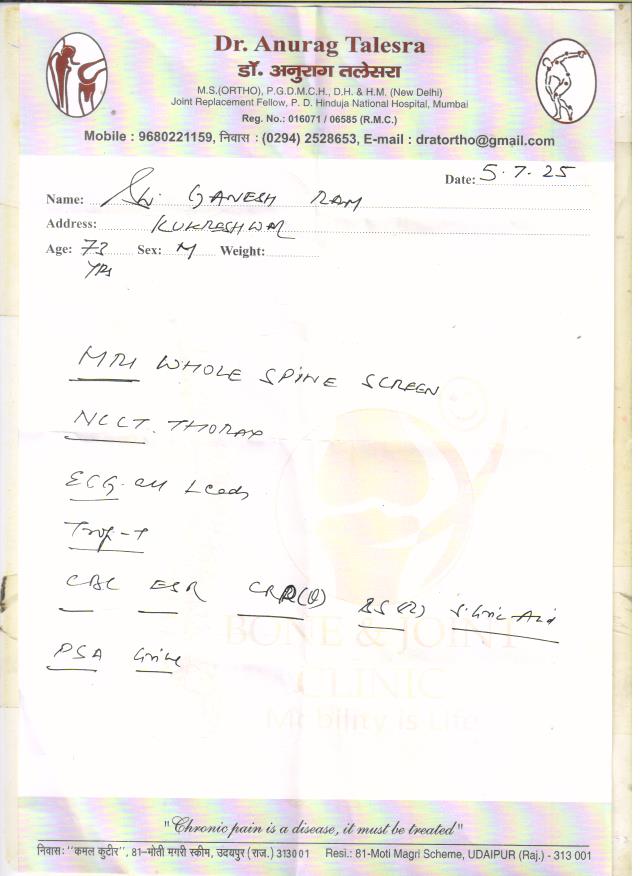 Dr. Anurag Talesra
डॉ. अनुराग तलेसरा
M.S.(ORTHO), P.G.D.M.C.H., D.H. & H.M. (New Delhi)
Joint Replacement Fellow, P. D. Hinduja National Hospital, Mumbai
Reg. No.: 016071 / 06585 (R.M.C.)
Mobile : 9680221159, निवास : (0294) 2528653, E-mail : dratortho@gmail.com
Date: 5.7.25
Name: Shri GANESH RAM
Address: KUKRESHWAR
Age: 73 yrs Sex: M Weight:
MRI WHOLE SPINE SCREEN
NCCT. THORAX
ECG all Leads
Trop-T
CBC ESR CRP(Q) BS(R) S. Uric Acid
PSA Urine
BONE & JOINT
CLINIC
Mobility is Life
"Chronic pain is a disease, it must be treated"
निवास: "कमल कुटीर", 81-मोती मगरी स्कीम, उदयपुर (राज.) 313001 Resi.: 81-Moti Magri Scheme, UDAIPUR (Raj.) - 313 001